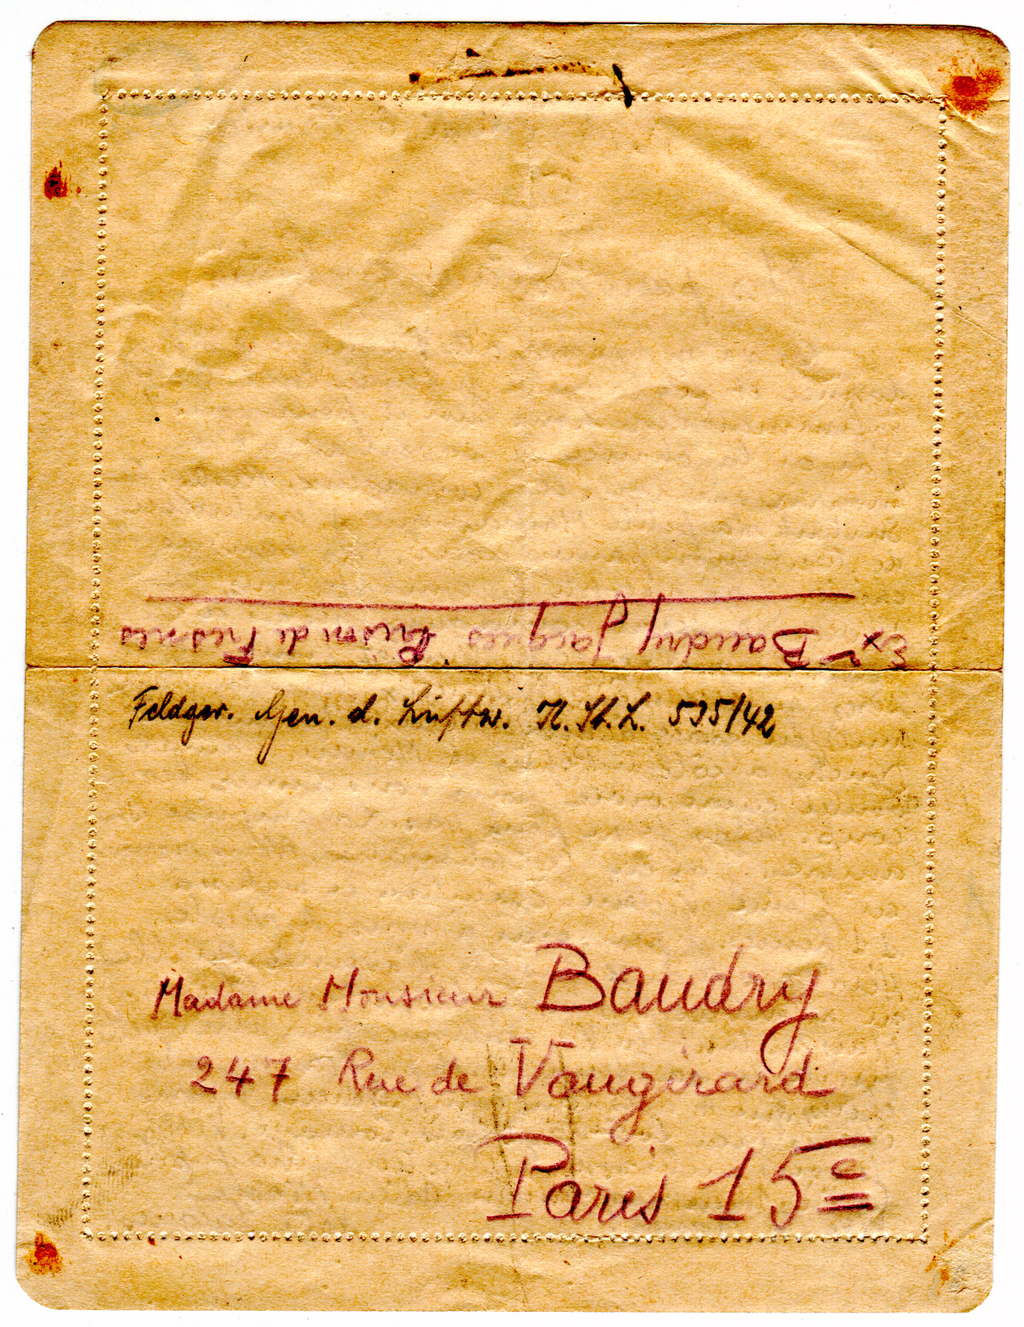 Exr Baudry Jacques Prison de Fresnes
Feldger. Gen. d. Luftw. K. St. L. 535/42
Madame Monsieur Baudry
247 Rue de Vaugirard
Paris 15e